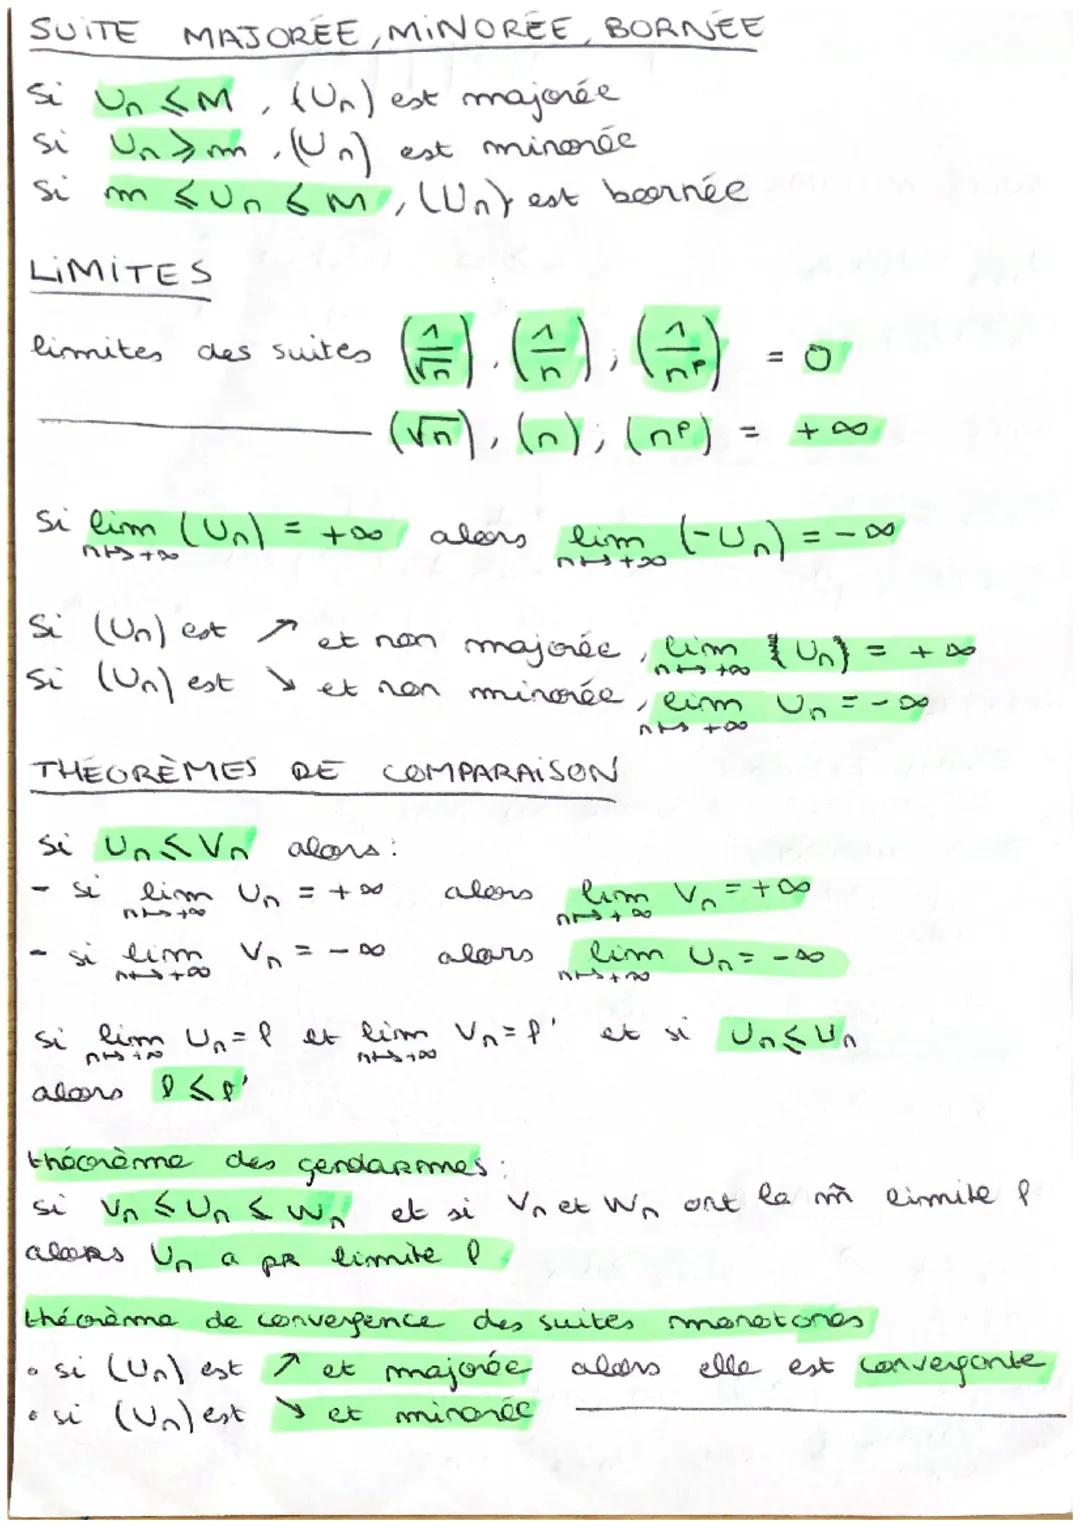 SUITE MAJORÉE, MINORÉE, BORNÉE
Si Un ⩽ M, (Un) est majorée
Si Un ⩾ m, (Un) est minorée
Si m ⩽ Un ⩽ M, (Un) est bornée
LIMITES
limites des suites (1/√n), (1/n); (1/nᵖ) = 0
(√n), (n); (nᵖ) = +∞
Si lim (Un) = +∞ alors lim (-Un) = -∞
n↦+∞ n↦+∞
Si (Un) est ↗ et non majorée, lim (Un) = +∞
n↦+∞
Si (Un) est ↘ et non minorée, lim Un = -∞
n↦+∞
THÉORÈMES DE COMPARAISON
Si Un ⩽ Vn alors :
- si lim Un = +∞ alors lim Vn = +∞
n↦+∞ n↦+∞
- si lim Vn = -∞ alors lim Un = -∞
n↦+∞ n↦+∞
si lim Un = l et lim Vn = l' et si Un ⩽ Vn
n↦+∞ n↦+∞
alors l ⩽ l'
théorème des gendarmes :
si Vn ⩽ Un ⩽ Wn et si Vn et Wn ont la m̂ limite l
alors Un a pr limite l
théorème de convergence des suites monotones
• si (Un) est ↗ et majorée alors elle est convergente
• si (Un) est ↘ et minorée